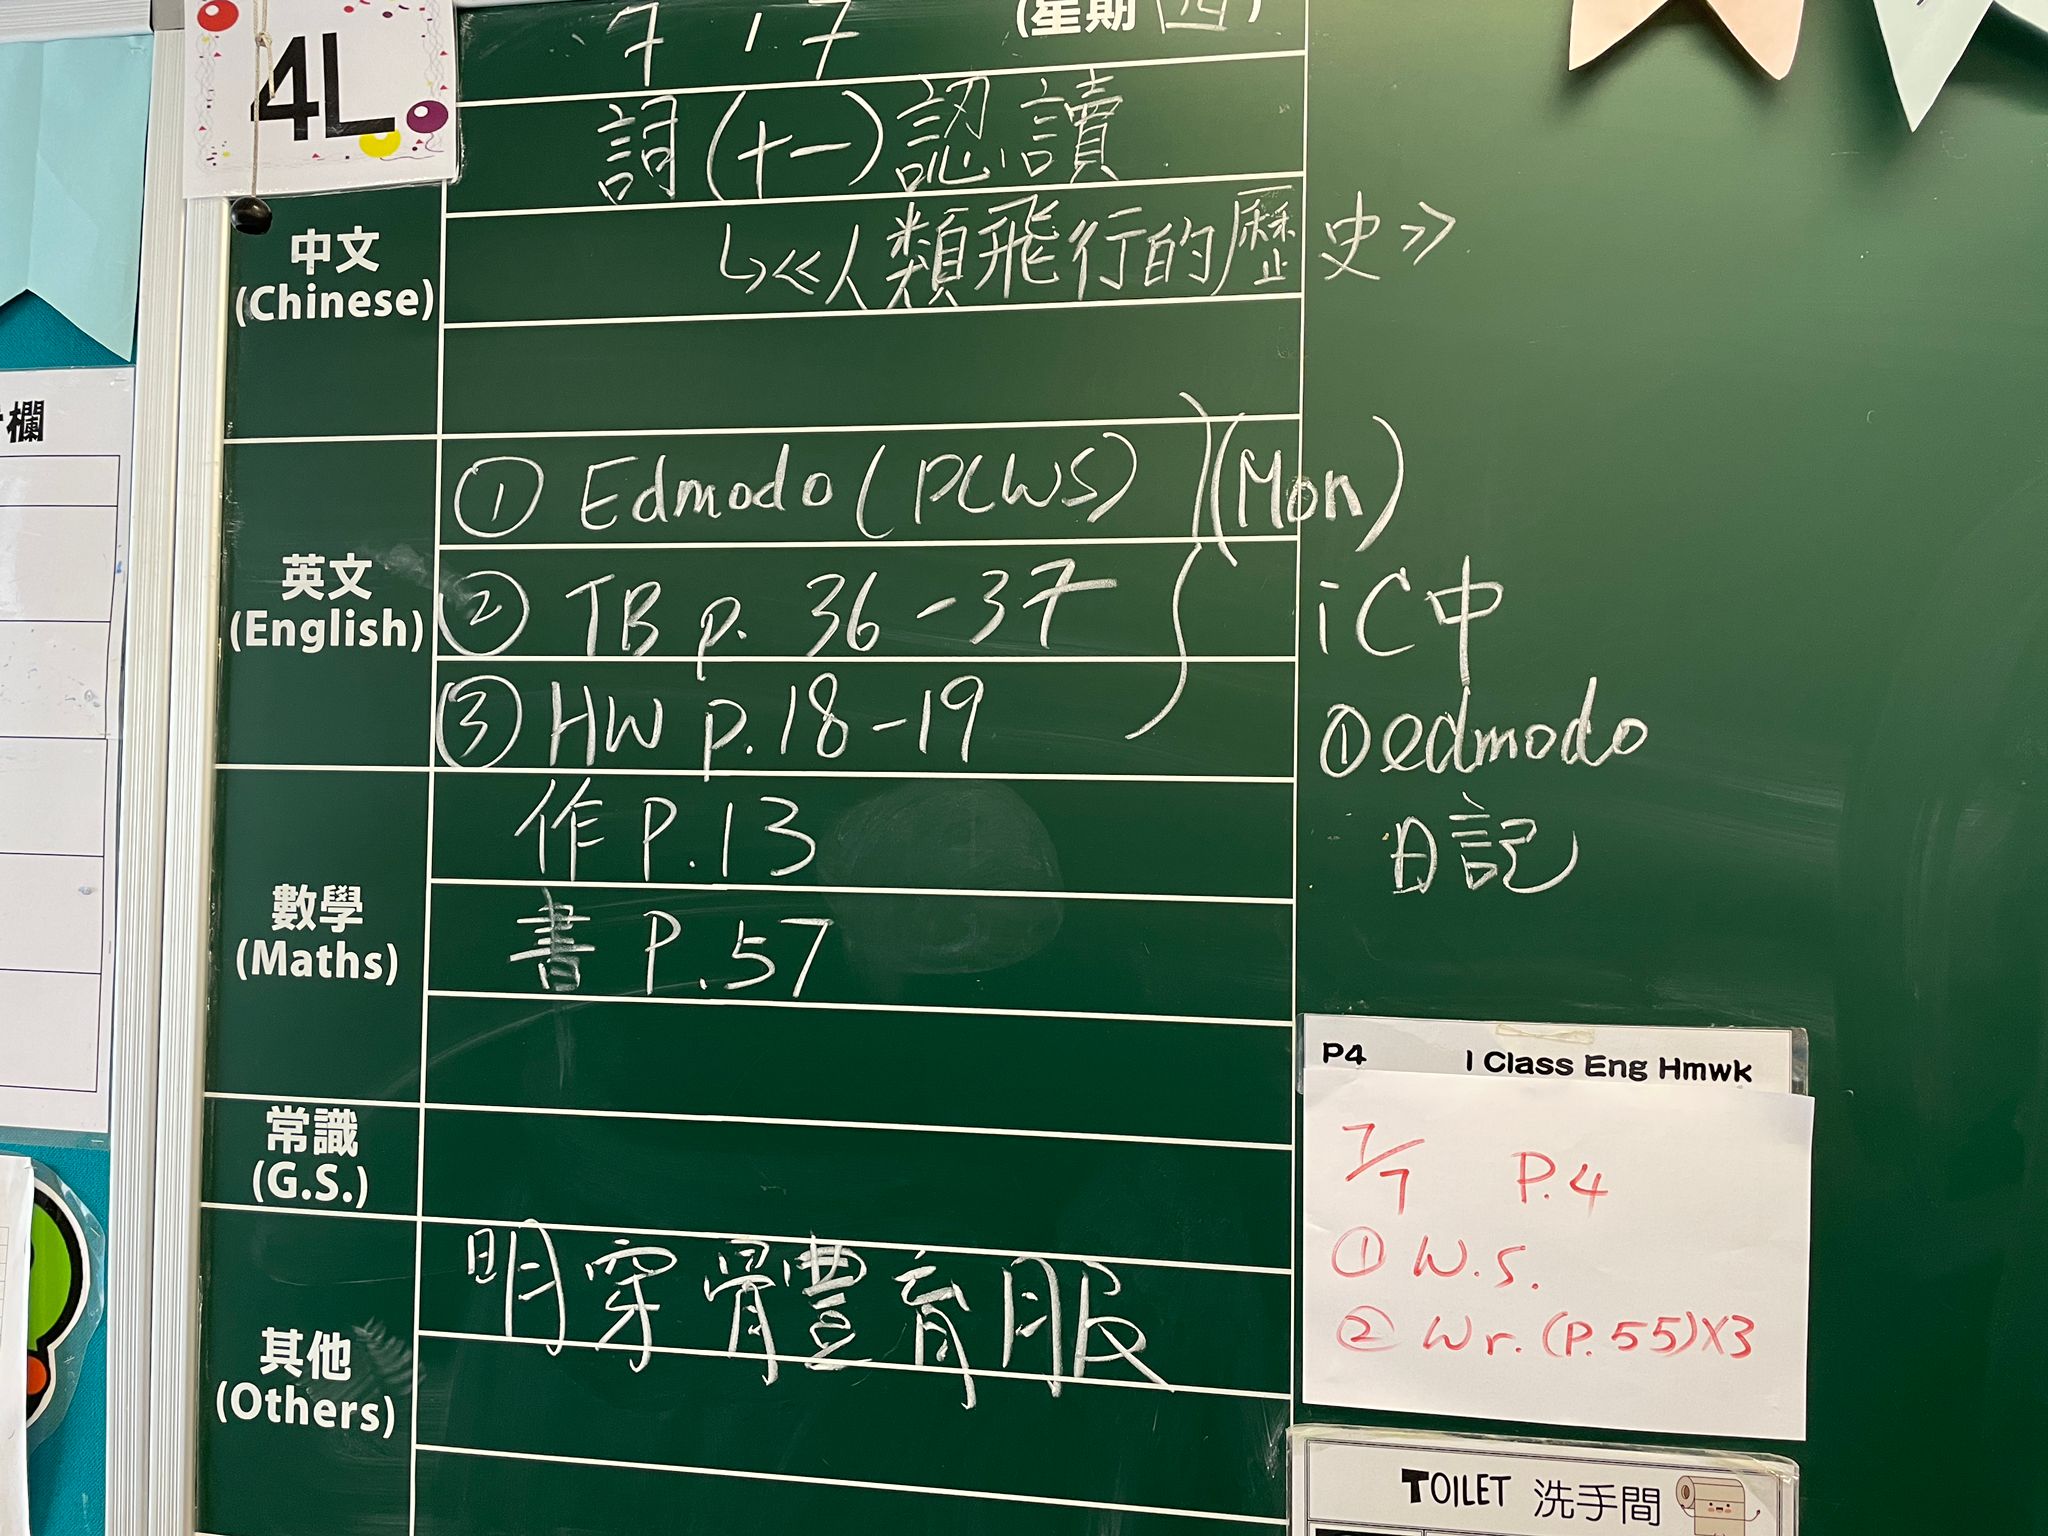 4L
7 , 7 (星期四)
詞(十一)認讀
中文
(Chinese)
↳《人類飛行的歷史》
欄
英文
(English)
① Edmodo (PLWS) (Mon)
② TB p. 36-37
③ HW p.18-19
iC中
① edmodo
日記
數學
(Maths)
作 P.13
書 P.57
常識
(G.S.)
其他
(Others)
明穿體育服
P4 I Class Eng Hmwk
7/7 P.4
① W.S.
② Wr. (P.55)X3
TOILET 洗手間